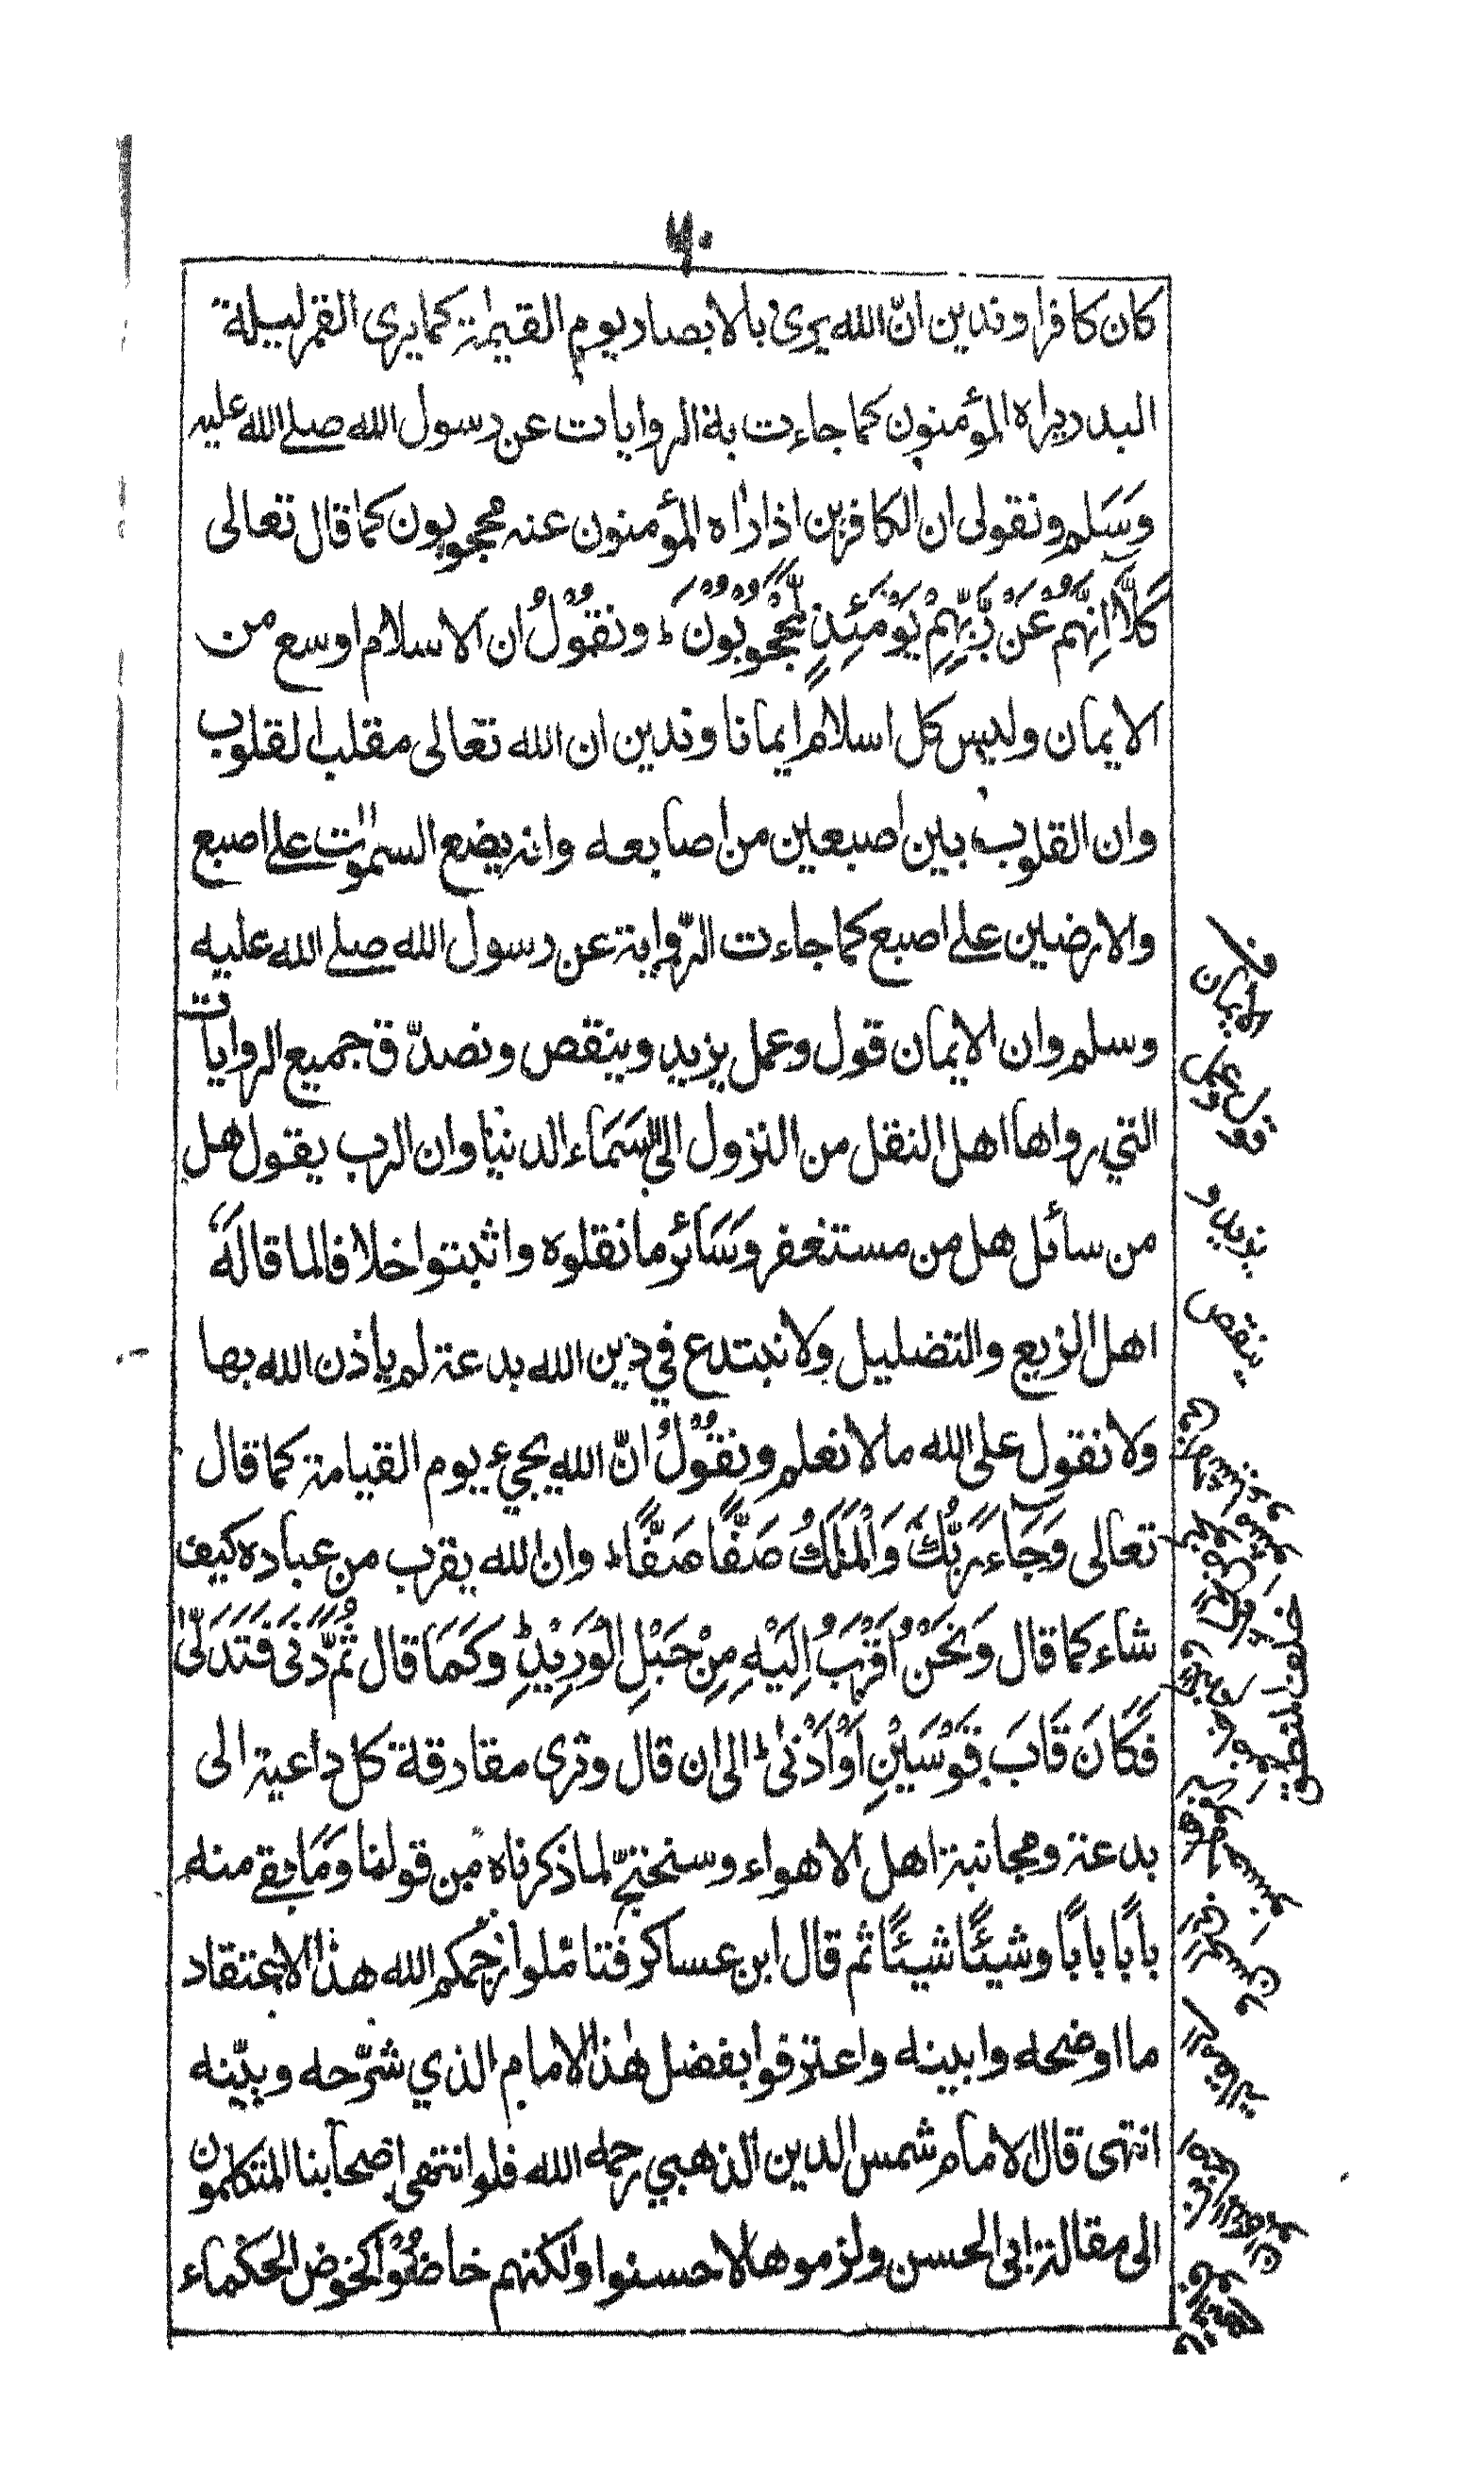 ۶۰
كان كافرا وندين انّ الله يرى بالابصار يوم القيمٰة كما يرى القمر ليلة
البدر يراه المؤمنون كما جاءت به الروايات عن رسول الله صلے الله عليه
وسَلم ونقولى ان الكافرين اذا راٰه المؤمنون عنه محجوبون كما قال تعالى
كَلَّا اِنَّهُمْ عَنْ رَّبِّهِمْ يَوْمَئِذٍ لَّمَحْجُوْبُوْنَ ط ونقُوْلُ ان الاسلام اوسع من
الايمان وليس كل اسلام ايمانا وندين ان الله تعالى مقلب القلوب
وان القلوب بين اصبعين من اصابعه وانه يضع السمٰوٰت علے اصبع
والارضين علے اصبع كما جاءت الرّواية عن رسول الله صلے الله عليه
وسلم وان الايمان قول وعمل يزيد وينقص ونصدّق جميع الروايات
التي رواها اهل النقل من النزول الى السَّمَاء الدنيا وان الرب يقول هل
من سائل هل من مستغفر وسَائر ما نقلوه واثبتوا خلافا لما قالهَٗ
اهل الزيع والتضليل ولا نبتدع في دين الله بدعة لم ياذن الله بها
ولا نقول على الله مالا نعلم ونقُوْلُ انّ الله يجيء يوم القيامة كما قال
تعالى وَجَاءَ رَبُّكَ وَالْمَلَكُ صَفًّا صَفًّا ط وان الله يقرب من عباده كيف
شاء كما قال وَنَحْنُ اَقْرَبُ اِلَيْهِ مِنْ حَبْلِ الْوَرِيْدِ ط وَكَمَا قال ثُمَّ دَنٰى فَتَدَلّٰى
فَكَانَ قَابَ قَوْسَيْنِ اَوْ اَدْنٰى ط الى ان قال وترى مقارقة كل داعية الى
بدعة ومجانبة اهل الاهواء وسنحتجّ لما ذكرناه من قولنا وَمَا بقے منه
باباً باباً وشيئًا شيئًا ثم قال ابن عساكر فتامّلوا رحمكم الله هذا الاعتقاد
ما اوضحه وابينه واعترفوا بفضل هٰذا الامام الذي شرّحه وبيّنه
انتهى قال الامام شمس الدين الذهبي رحمه الله فلو انتهى اصحابنا المتكلمون
الى مقالة ابى الحسن ولزموها لاحسنوا ولٰكنهم خاضُوْا كخوض الحكماء
الايمان
قول وعمل
يزيد و
ينقص